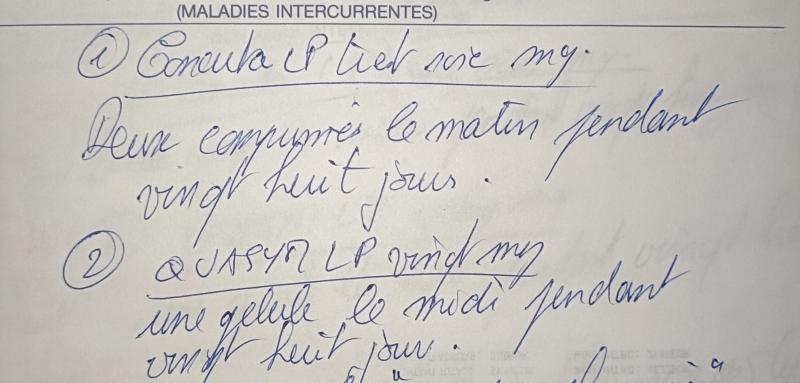 (MALADIES INTERCURRENTES)
① Concerta LP mg.
Deux comprimés le matin pendant
vingt huit jours.
② QUASYM LP vingt mg
une gélule le midi pendant
vingt huit jours.